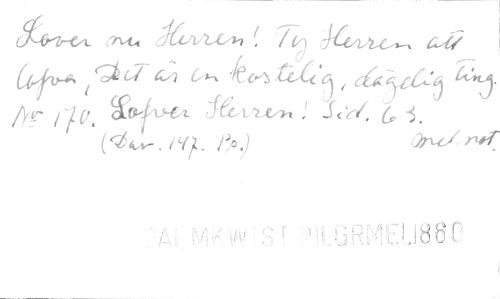 Lover nu Herren! Ty Herren att
lofva, Det är en kostelig, dägelig ting.
No 170. Lofver Herren! Sid. 63.
(Dav. 147. Ps.) med not.
PALMKWIST PILGRMEL1860